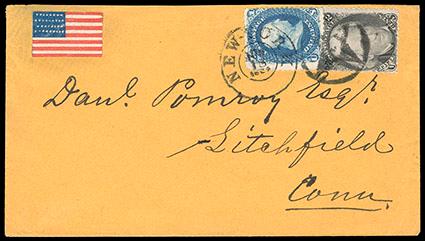 NEW-YORK
Danl. Pomroy Esqr.
Litchfield
Conn.